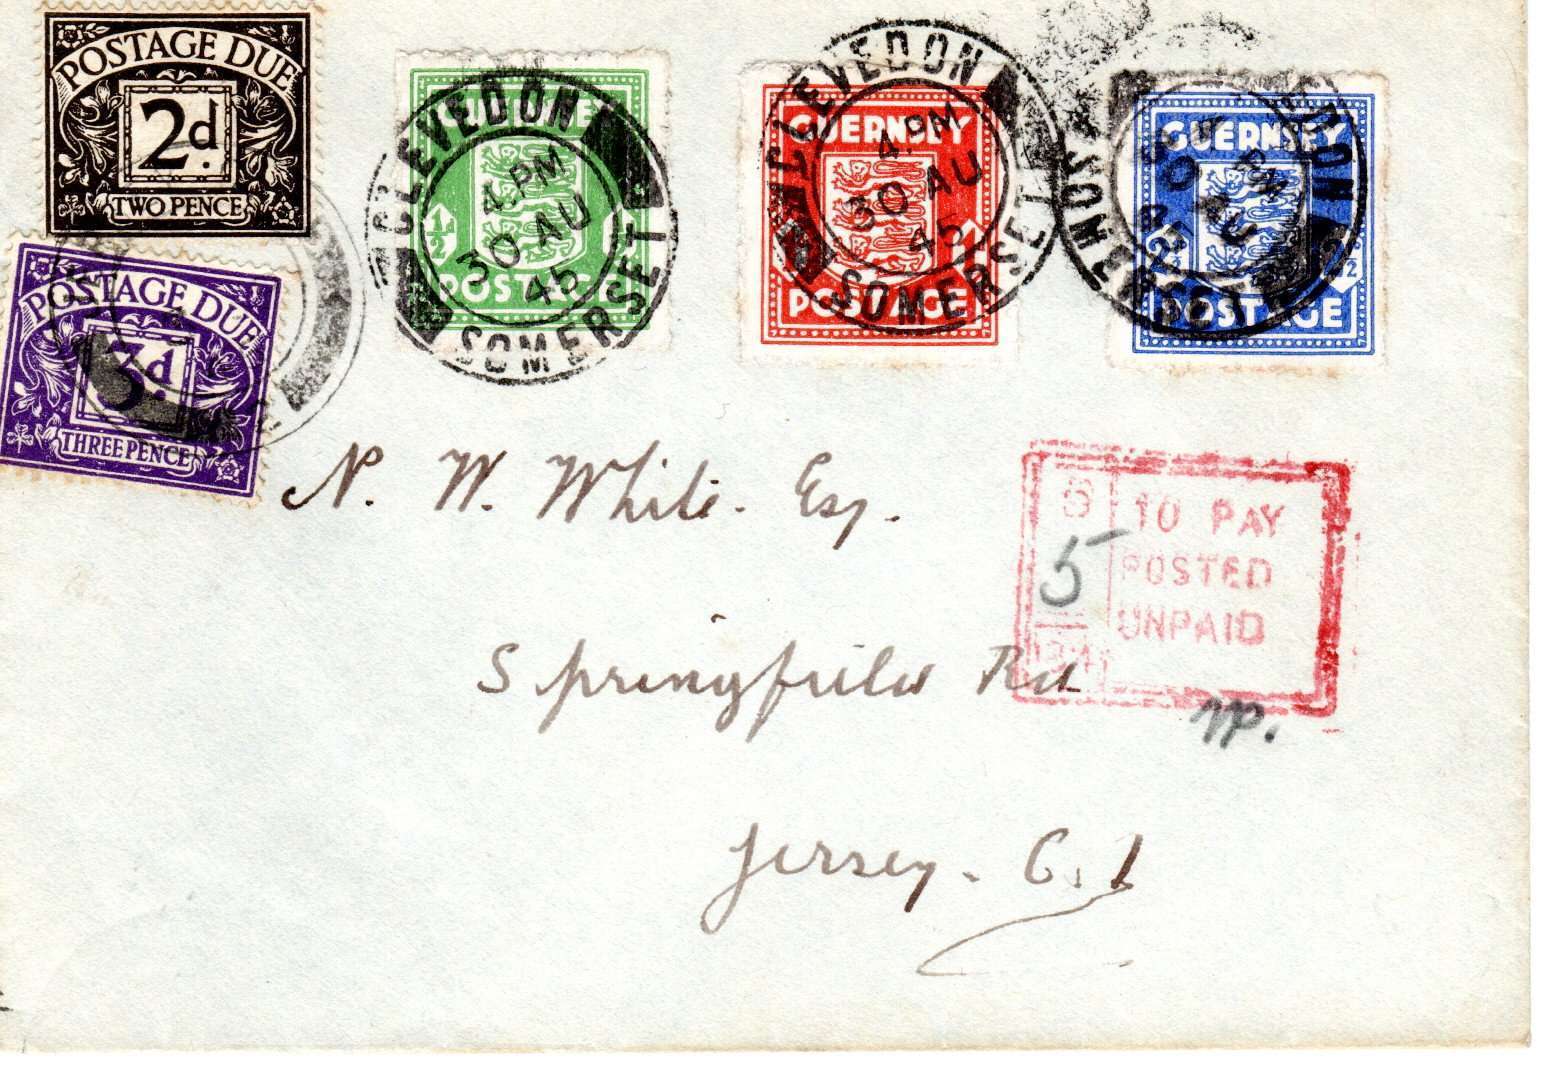 POSTAGE DUE
2d.
TWO PENCE
POSTAGE DUE
3d.
THREE PENCE
1/2
POSTAGE
CLEVEDON
4. PM
30 AU
45
SOMERSET
GUERNSEY
POSTAGE
CLEVEDON
4. PM
30 AU
45
SOMERSET
GUERNSEY
POSTAGE
N. W. White. Esq.
5
TO PAY
POSTED
UNPAID
Springfield Rd
Jersey. C. I